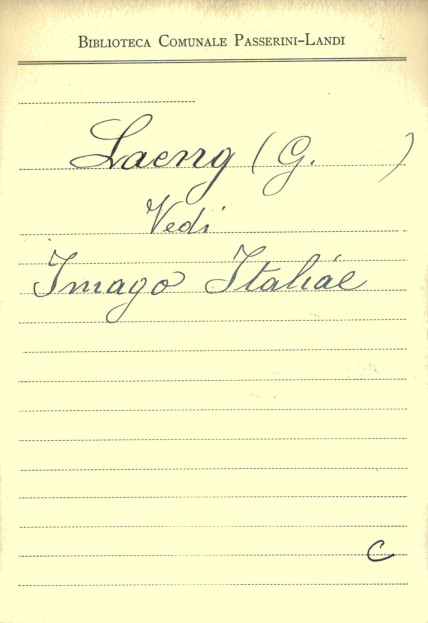 BIBLIOTECA COMUNALE PASSERINI-LANDI
Laeng (G. )
Vedi
Imago Italiae
C